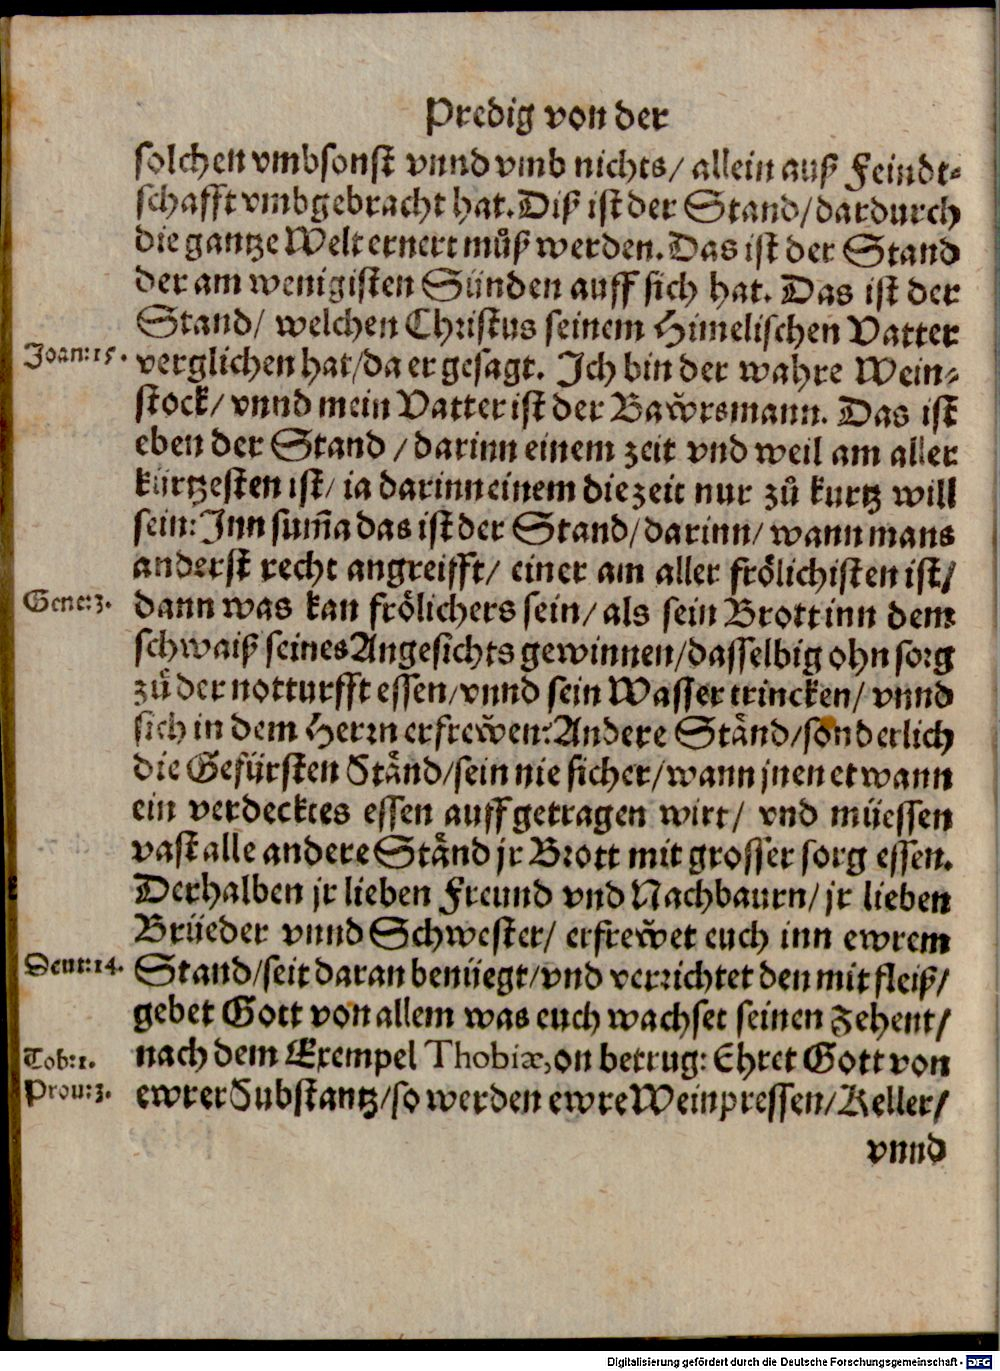 Predig von der
solchen vmbsonst vnnd vmb nichts/ allein auß Feindt-
schafft vmbgebracht hat. Diß ist der Stand/ dardurch
die gantze Welt ernert můß werden. Das ist der Stand
der am wenigisten Sünden auff sich hat. Das ist der
Stand/ welchen Christus seinem Himelischen Vatter
Joan: 15. verglichen hat/ da er gesagt. Ich bin der wahre Wein-
stock/ vnnd mein Vatter ist der Baẘrsmann. Das ist
eben der Stand / darinn einem zeit vnd weil am aller
kürtzesten ist/ ia darinn einem die zeit nur zů kurtz will
sein: Inn sum̃a das ist der Stand/ darinn/ wann mans
anderst recht angreifft/ einer am aller frölichisten ist/
Gene: 3. dann was kan frölichers sein/ als sein Brott inn dem
schwaiß seines Angesichts gewinnen/ dasselbig ohn sorg
zů der notturfft essen/ vnnd sein Wasser trincken/ vnnd
sich in dem Herrn erfreẘen: Andere Ständ/ sonderlich
die Gefürsten Ständ/ sein nie sicher/ wann jnen etwann
ein verdecktes essen auffgetragen wirt/ vnd müessen
vast alle andere Ständ jr Brott mit grosser sorg essen.
Derhalben jr lieben Freund vnd Nachbaurn/ jr lieben
Brüeder vnnd Schwester/ erfreẘet euch inn ewrem
Deut: 14. Stand/ seit daran benüegt/ vnd verrichtet den mit fleiß/
gebet Gott von allem was euch wachset seinen Zehent/
Tob: 1. nach dem Exempel Thobiæ, on betrug: Ehret Gott von
Prou: 3. ewrer Substantz/ so werden ewre Weinpressen/ Keller/
vnnd
Digitalisierung gefördert durch die Deutsche Forschungsgemeinschaft - DFG